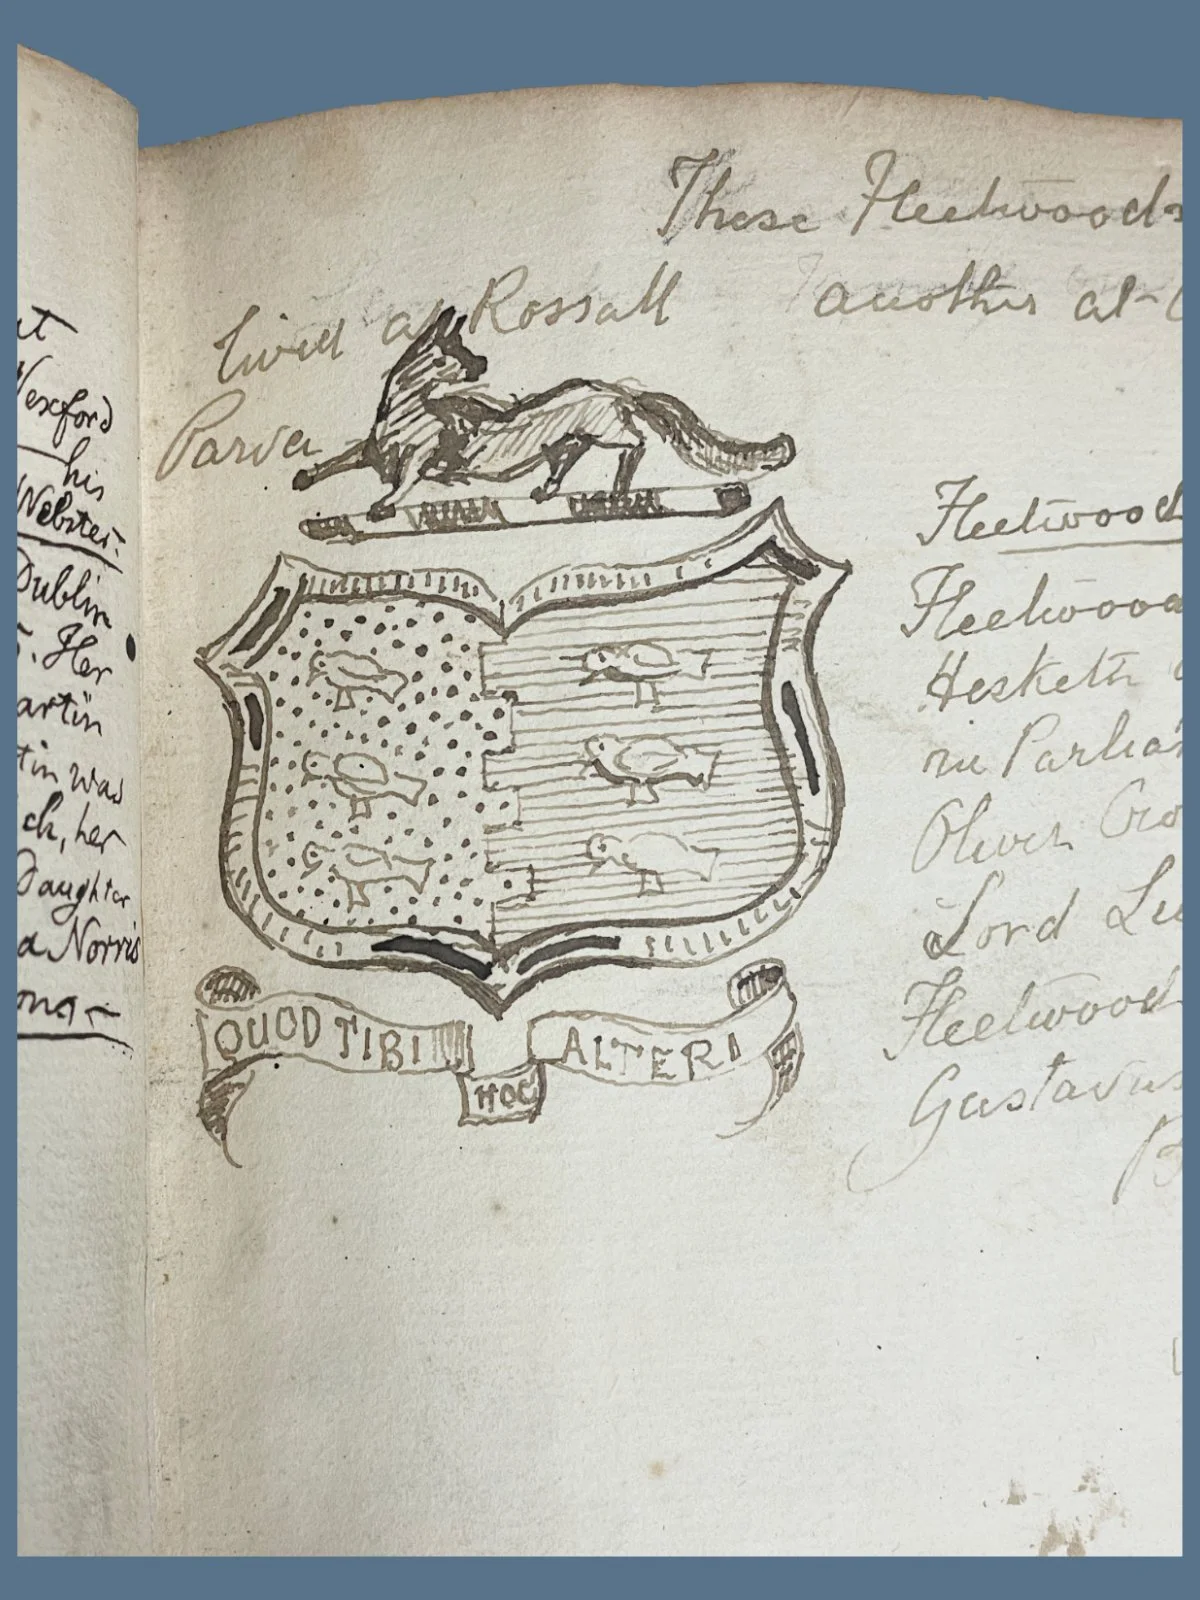 at
Wexford
his
Webster.
Dublin
Her
artin
tin was
ck, her
Daughter
a Norris
ona -
These Fleetwoods
lived at Rossall another at
Parva
Fleetwood
Fleetwood
Hesketh
in Parlia
Oliver Cro
Lord Le
Fleetwood
Gustavus
QUOD TIBI HOC ALTERI